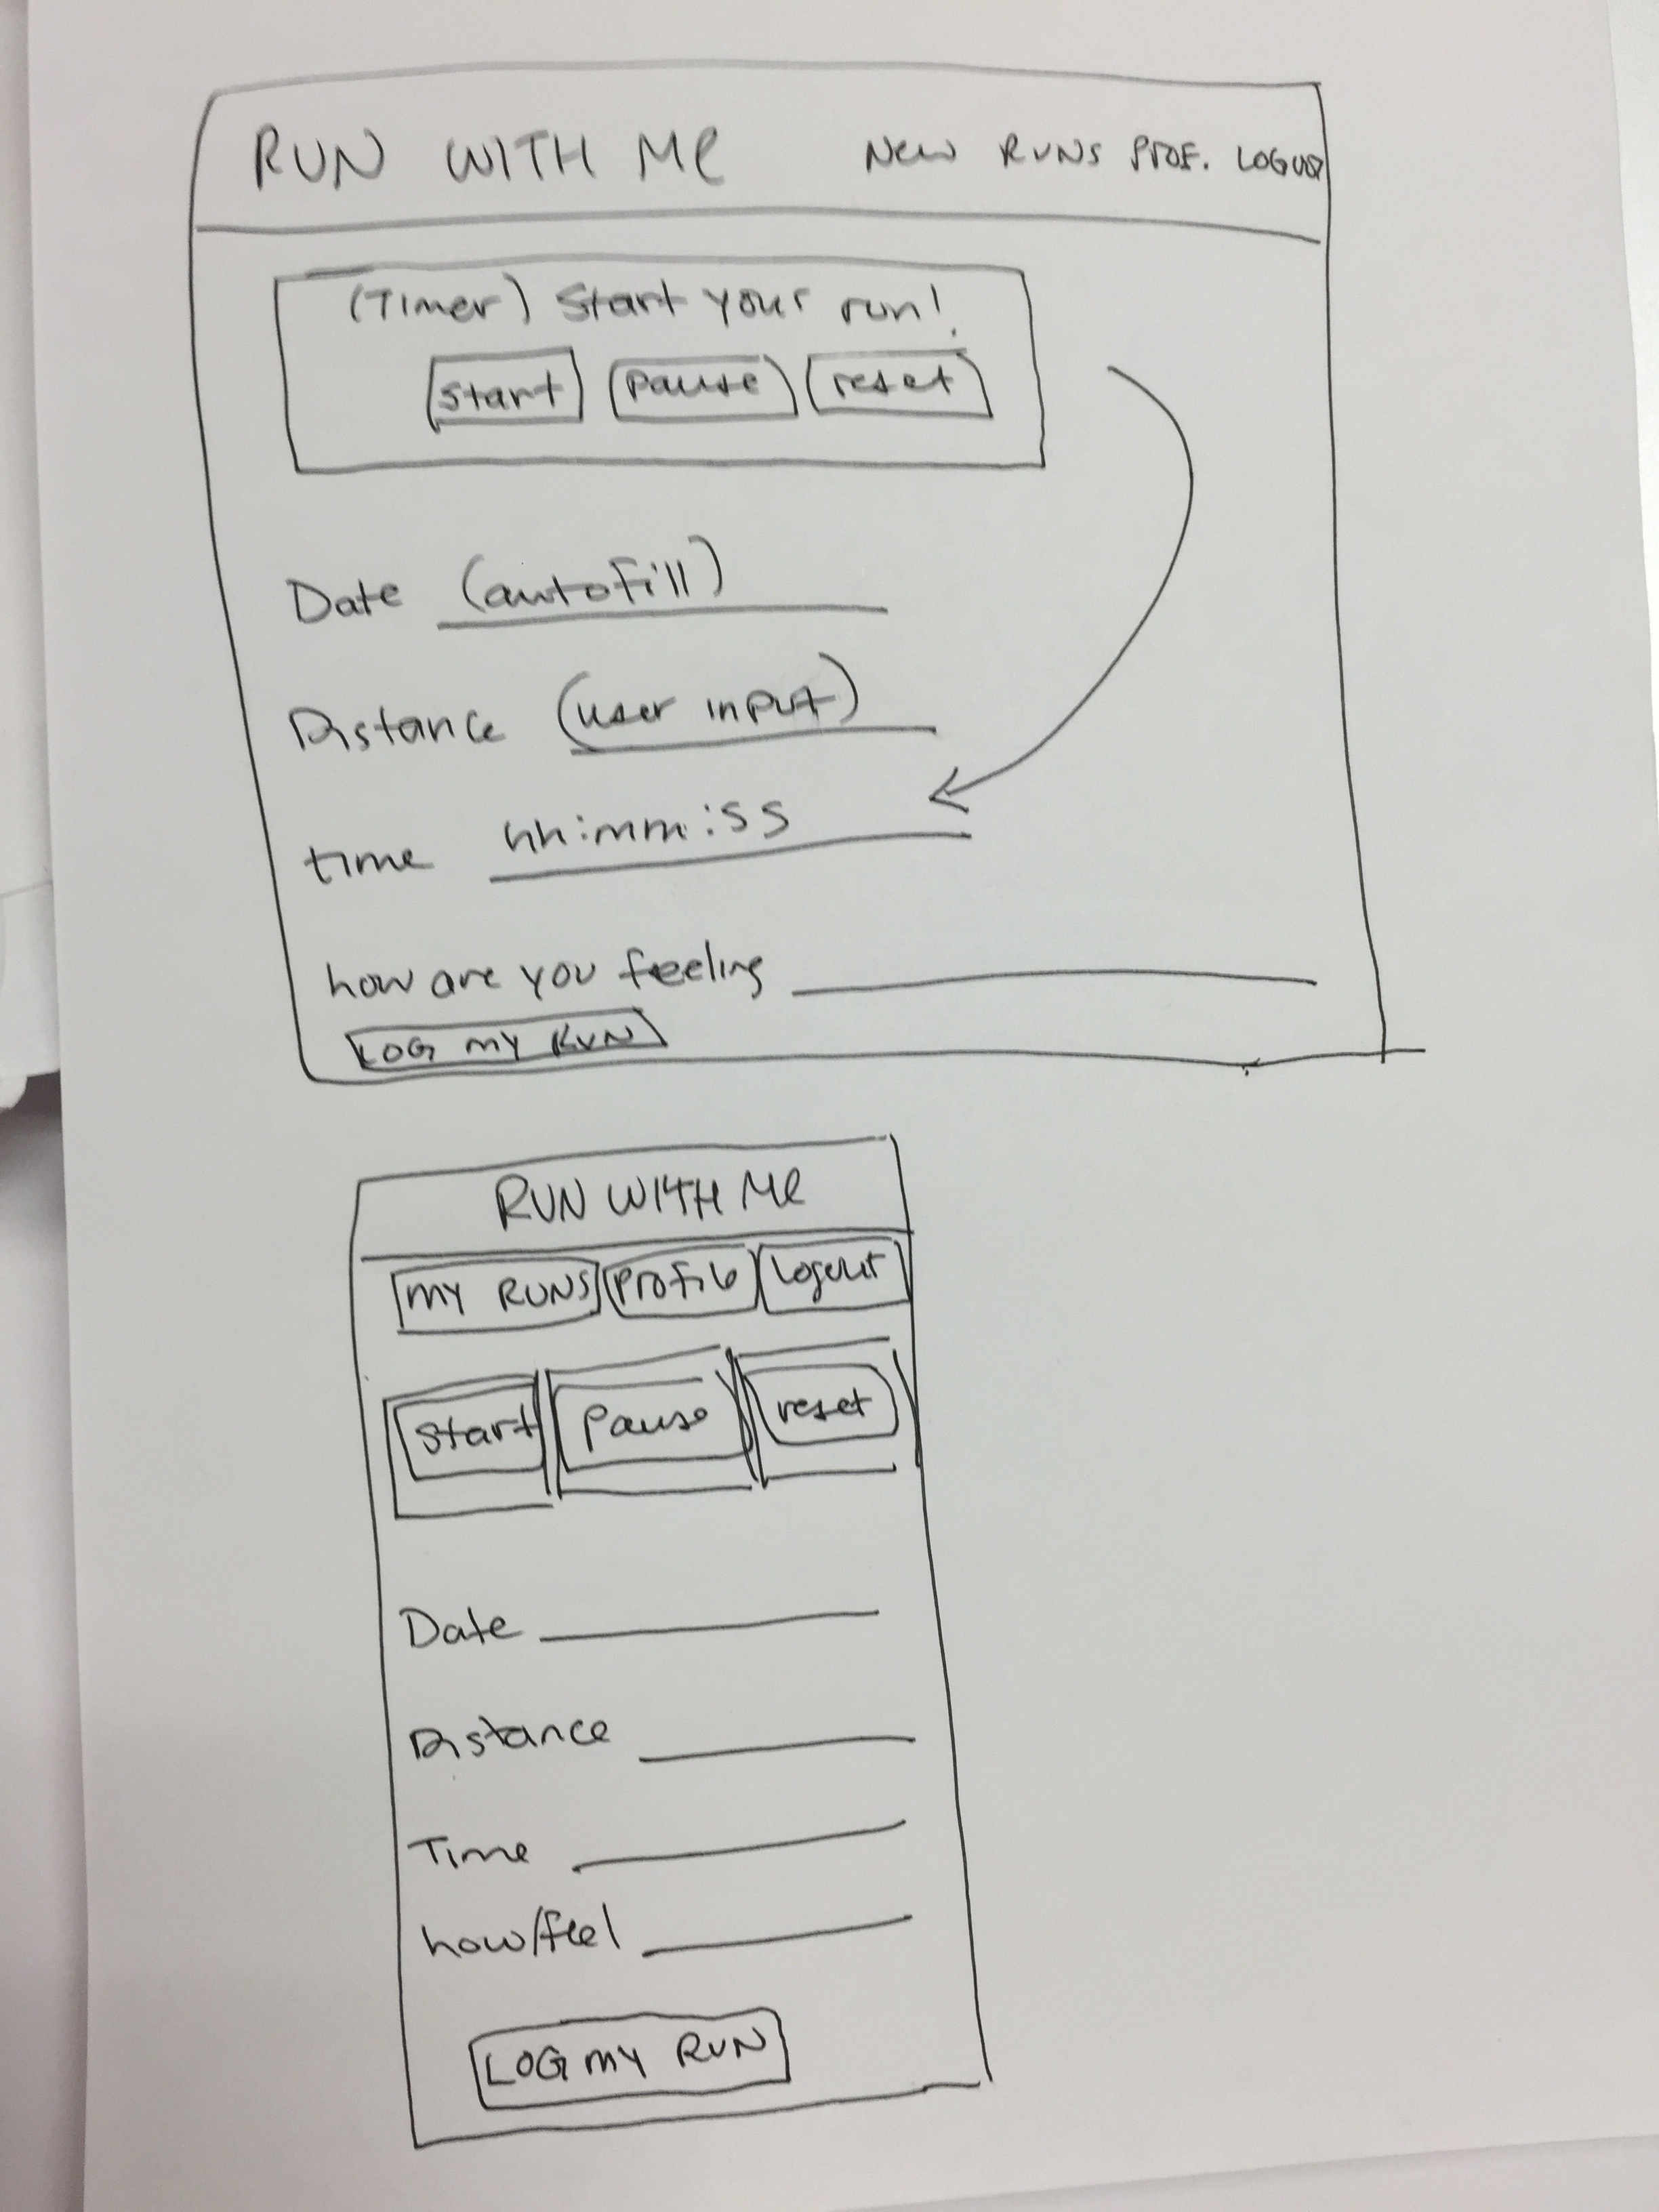 RUN WITH Me NEW RUNS PROF. LOGOUT
(Timer) Start your run!
start pause reset
Date (autofill)
Distance (user input)
time hh:mm:ss
how are you feeling
LOG MY RUN
RUN WITH Me
MY RUNS Profile Logout
start Pause reset
Date
Distance
Time
how/feel
LOG MY RUN